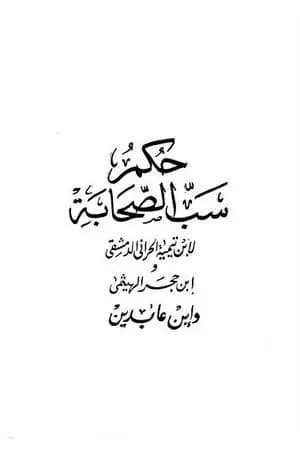 حُكمُ
سَبِّ الصَّحَابَةِ
لابن تيمية الحراني الدمشقي
و
ابن حجر الهيثمي
وابن عابدين